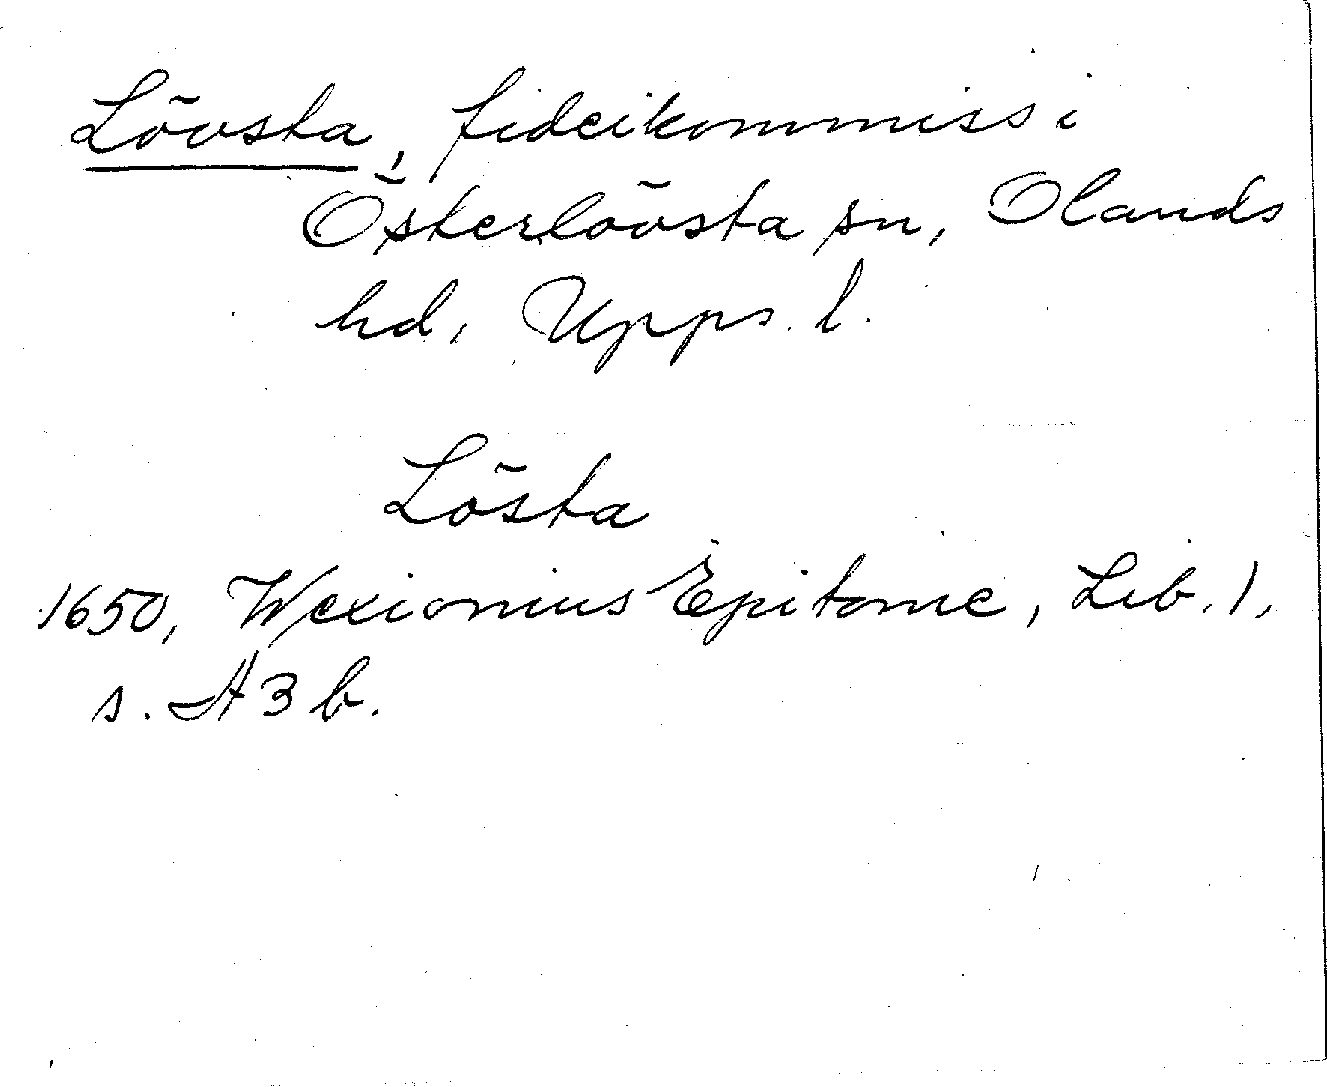 Lövsta, fideikommiss i
Österlövsta sn, Olands
hd, Upps. l.
Lösta
1650, Wexionius Epitome, Lib. 1,
s. A 3 b.